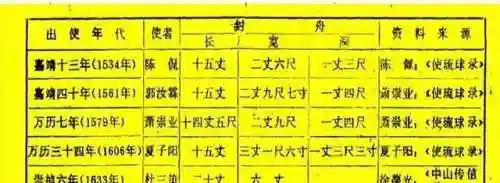 出使年代 使者 封舟 资料来源
长 宽 深
嘉靖十三年(1534年) 陈侃 十五丈 二丈六尺 一丈三尺 陈侃:《使琉球录》
嘉靖四十年(1561年) 郭汝霖 十五丈 二丈九尺七寸 一丈四尺 萧崇业:《使琉球录》
万历七年(1579年) 萧崇业 十四丈五尺 二丈九尺 一丈四尺 萧崇业:《使琉球录》
万历三十四年(1606年) 夏子阳 十五丈 三丈一尺六寸 一丈三尺三寸 夏子阳:《使琉球录》
崇祯六年(1633年) 杜三策 二十丈 六丈 《中山传信